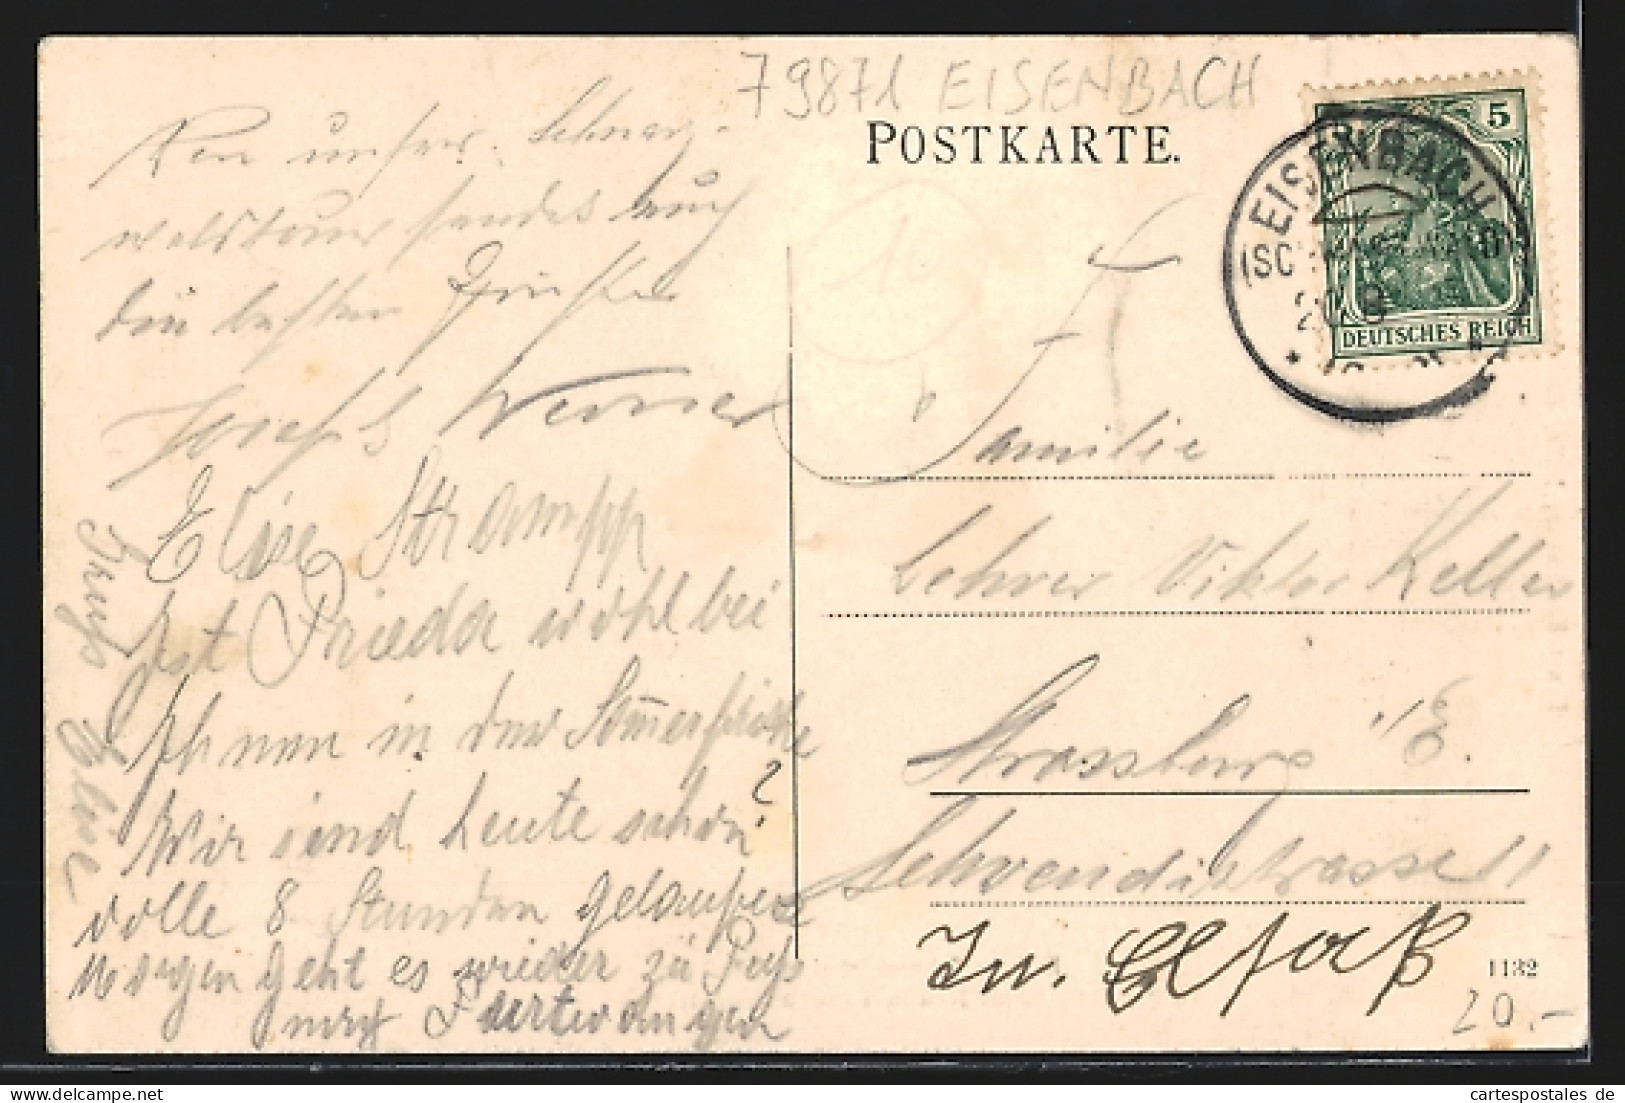 79871 EISENBACH
POSTKARTE.
5
DEUTSCHES REICH
EISENBACH
Von unsrer Schwarz-
waldtour sendet Euch
die besten Grüsse
Joseph Werner
Elise Strampp
Ist Frieda wohl bei
Ihnen in der Sommerfrische
?
Wir sind heute schon
volle 8 Stunden gelaufen
Morgen geht es wieder zu Fuss
nach Furtwangen
Gruss Elise
Familie
Lehrer Viktor Keller
Strassburg i/E.
Schwendistrasse 11
In. Elsaß
1132
20.-
cartespostales de